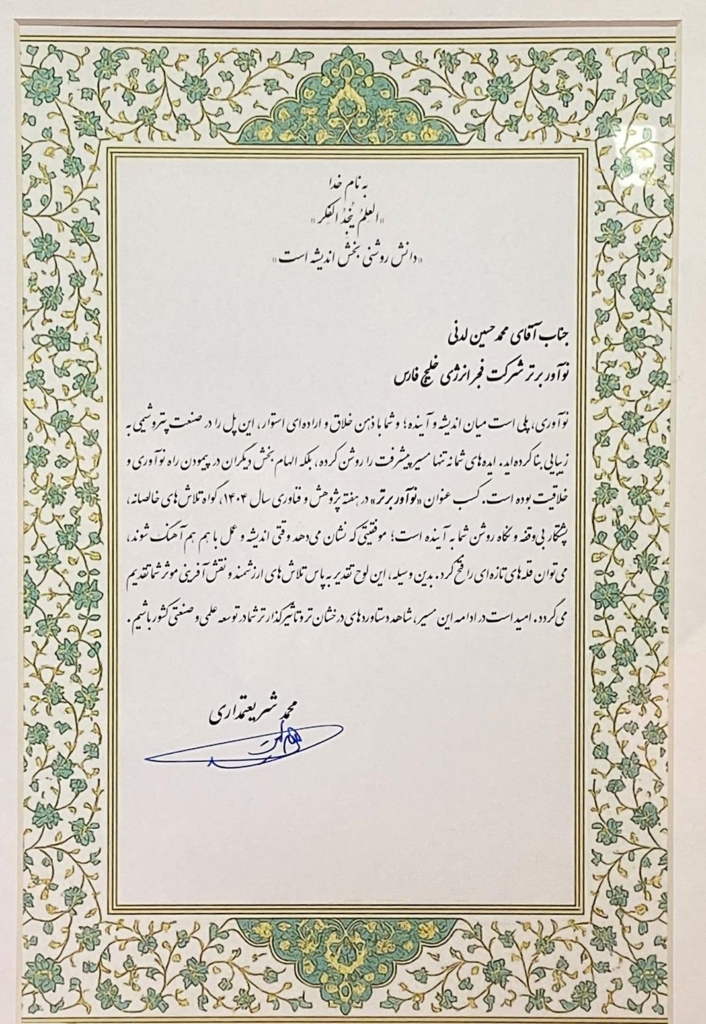 به نام خدا
«العلمُ یُنجِدُ الفکر»
«دانش روشنی بخش اندیشه است»
جناب آقای محمدحسین لدنی
نوآور برتر شرکت فجر انرژی خلیج فارس
نوآوری، پلی است میان اندیشه و آینده؛ و شما با ذهن خلاق و اراده‌ای استوار، این پل را در صنعت پتروشیمی به
زیبایی بنا کرده‌اید. ایده‌های شما نه تنها مسیر پیشرفت را روشن کرده، بلکه الهام بخش دیگران در پیمودن راه نوآوری و
خلاقیت بوده است. کسب عنوان «نوآور برتر» در هفته پژوهش و فناوری سال ۱۴۰۴، گواه تلاش‌های خالصانه،
پشتکار بی‌وقفه و نگاه روشن شما به آینده است؛ موفقیتی که نشان می‌دهد وقتی اندیشه و عمل با هم هم آهنگ شوند،
می‌توان قله‌های تازه‌ای را فتح کرد. بدین وسیله، این لوح تقدیر به پاس تلاش‌های ارزشمند و نقش آفرینی موثر شما تقدیم
می‌گردد. امید است در ادامه این مسیر، شاهد دستاوردهای درخشان‌تر و تاثیرگذارتر شما در توسعه علمی و صنعتی کشور باشیم.
محمد شریعتمداری